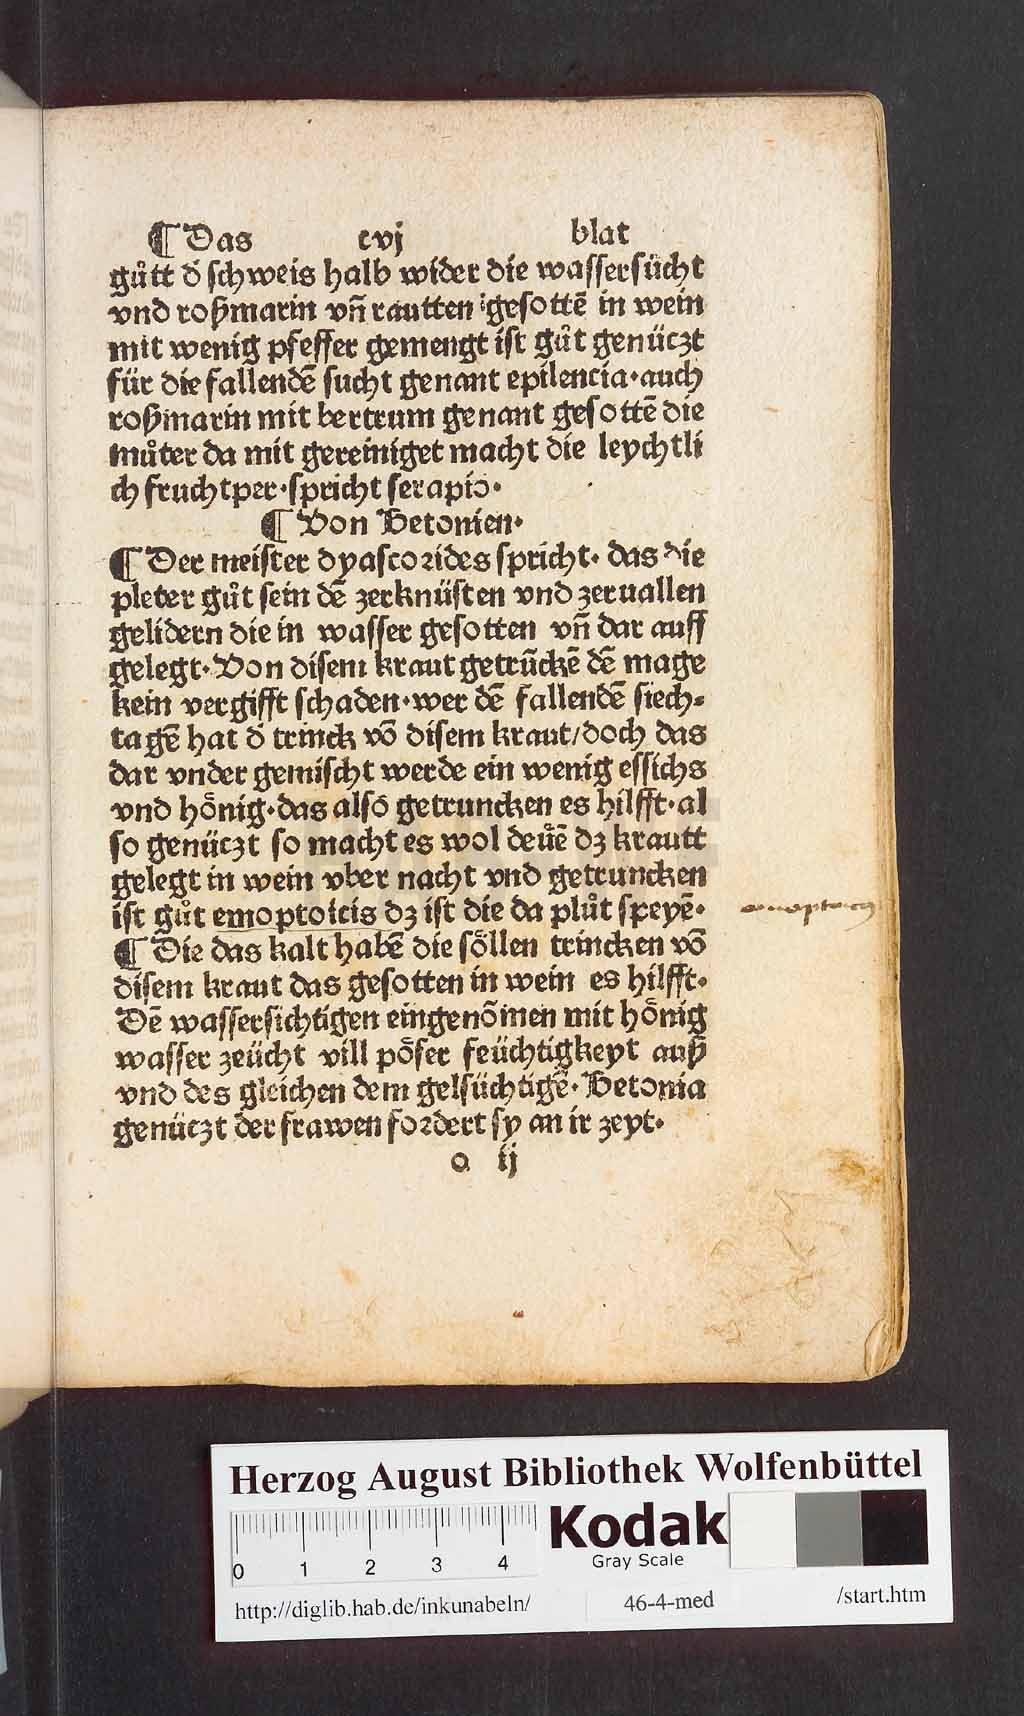 ¶ Das cvj blat
gůtt d̄ schweis halb wider die wassersücht
vnd roßmarin vñ rautten gesottē in wein
mit wenig pfeffer gemengt ist gůt genüczt
für die fallendē sucht genant epilencia·auch
roßmarin mit bertrum genant gesottē die
můter da mit gereiniget macht die leychtli
ch fruchtper·spricht serapio·
¶ Von Betonien·
¶ Der meister dyascorides spricht· das die
pleter gůt sein dē zerknüsten vnd zeruallen
gelidern die in wasser gesotten vñ dar auff
gelegt· Von disem kraut getrūckē dē mage
kein vergifft schaden·wer dē fallendē siech-
tagē hat d̄ trinck vō disem kraut/doch das
dar vnder gemischt werde ein wenig essichs
vnd hönig·das also getruncken es hilfft·al
so genüczt so macht es wol deuͤē dz krautt
gelegt in wein vber nacht vnd getruncken
ist gůt emoptoicis dz ist die da plůt speyē·
emoptoicis
¶ Die das kalt habē die söllen trincken vō
disem kraut das gesotten in wein es hilfft·
Dē wassersichtigen eingenōmen mit hönig
wasser zeücht vill pöser feüchtigkeyt auß
vnd des gleichen dem gelsüchtigē· Betonia
genüczt der frawen fordert sy an ir zeyt·
o ij
Herzog August Bibliothek Wolfenbüttel
0 1 2 3 4
Kodak
Gray Scale
http://diglib.hab.de/inkunabeln/ 46-4-med /start.htm